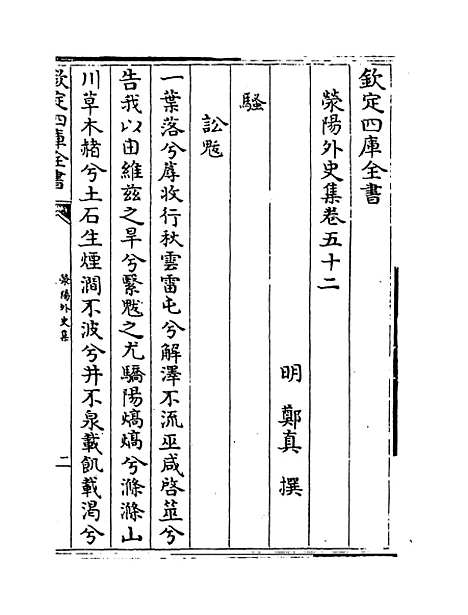 欽定四庫全書
滎陽外史集卷五十二
明 鄭真 撰
騷
訟魃
一葉落兮蓐收行秋雲雷屯兮解澤不流巫咸啓莁兮
告我以由維兹之旱兮繄魃之尤驕陽熇熇兮滌滌山
川草木赭兮土石生煙澗不波兮井不泉載飢載渴兮
欽定四庫全書
滎陽外史集